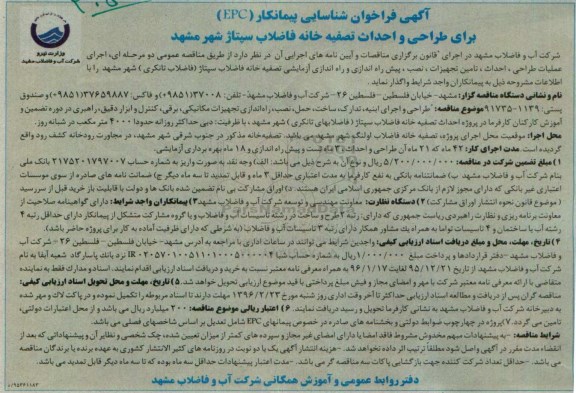 آگهی فراخوان شناسایی پیمانکار (EPC)
برای طراحی و احداث تصفیه خانه فاضلاب سپتاژ شهر مشهد
وزارت نیرو
شرکت آب و فاضلاب مشهد
شرکت آب و فاضلاب مشهد در اجرای قانون برگزاری مناقصات و آیین نامه های اجرایی آن در نظر دارد از طریق مناقصه عمومی دو مرحله ای، اجرای
عملیات طراحی، احداث، تامین تجهیزات، نصب، پیش راه اندازی و راه اندازی آزمایشی تصفیه خانه فاضلاب سپتاژ (فاضلاب تانکری) شهر مشهد را با
اطلاعات مشروحه ذیل به پیمانکاران واجد شرایط واگذار نماید.
نام و نشانی دستگاه مناقصه گزار: مشهد- خیابان فلسطین - فلسطین ۲۶ - شرکت آب و فاضلاب مشهد- تلفن: ۳۷۰۰۸(۰۵۱) و فاکس: ۳۷۶۵۹۸۸۷(۰۵۱) و صندوق
پستی: ۱۱۳۹-۹۱۷۳۵ موضوع مناقصه: طراحی و اجرای ابنیه، تدارک، ساخت، حمل، نصب، راه اندازی تجهیزات مکانیکی، برقی، کنترل و ابزار دقیق، راهبری در دوره تضمین و
آموزش کارکنان کارفرما در پروژه احداث تصفیه خانه فاضلاب سپتاژ (فاضلابهای تانکری) شهر مشهد، با ظرفیت: دبی حداکثر روزانه حدودا ۴۰۰۰ متر مکعب در شبانه روز.
محل اجرا: موقعیت محل اجرای پروژه، تصفیه خانه فاضلاب اولنگ شهر مشهد می باشد. تصفیه خانه مذکور در جنوب شرقی شهر مشهد، در مجاورت رودخانه کشف رود واقع
گردیده است. مدت اجرای کار: ۴۲ ماه که ۲۱ ماه آن طراحی و احداث، ۳ ماه تست و پیش راه اندازی و ۱۸ ماه بهره برداری آزمایشی.
۱) مبلغ تضمین شرکت در مناقصه: ۵/۲۰۰/۰۰۰/۰۰۰ ریال و نوع آن به شرح ذیل می باشد: الف) وجه نقد به صورت واریز به شماره حساب ۲۱۷۵۲۰۱۷۹۷۰۰۷ بانک ملی
بنام شرکت آب و فاضلاب مشهد ب) ضمانتنامه بانکی به نفع کارفرما به مدت اعتباری حداقل ۳ ماه و قابل تمدید تا سه ماه دیگر ج) ضمانت نامه های صادره از سوی موسسات
اعتباری غیر بانکی که دارای مجوز لازم از بانک مرکزی جمهوری اسلامی ایران هستند. د) اوراق مشارکت بی نام تضمین شده بانک ها و دولت با قابلیت باز خرید قبل از سررسید
(موضوع قانون نحوه انتشار اوراق مشارکت) ۲) دستگاه نظارت: معاونت مهندسی و توسعه شرکت آب و فاضلاب مشهد ۳) پیمانکاران واجد شرایط: دارای گواهینامه صلاحیت از
معاونت برنامه ریزی و نظارت راهبردی ریاست جمهوری که دارای: رتبه ۲ طرح و ساخت در رشته تاسیسات آب و فاضلاب و یا گروه مشارکت متشکل از پیمانکار دارای حداقل رتبه ۴
رشته آب یا ساختمان و ۴ تاسیسات توأما به همراه یک مشاور همکار دارای رتبه ۳ تاسیسات آب و فاضلاب (به شرطی که دارای ظرفیت آماده به کار برای پروژه حاضر باشد).
۴) تاریخ، مهلت، محل و مبلغ دریافت اسناد ارزیابی کیفی: واجدین شرایط می توانند در ساعات اداری با مراجعه به آدرس مشهد- خیابان فلسطین - فلسطین ۲۶ - شرکت آب
و فاضلاب مشهد -دفتر قراردادها و پرداخت مبلغ ۱/۰۰۰/۰۰۰ ریال به شماره حساب شبا
شرکت آب و فاضلاب مشهد از تاریخ ۹۵/۱۲/۲۱ لغایت ۹۶/۱/۱۷ به همراه معرفی نامه معتبر نسبت به خرید و دریافت اسناد ارزیابی اقدام نمایند. اسناد و مدارک فقط به نماینده
متقاضی با ارائه معرفی نامه معتبر شرکت با مهر و امضای مجاز و فیش مبلغ پرداختی با قید موضوع ارزیابی تحویل خواهد شد. ۵) تاریخ، مهلت و محل تحویل اسناد ارزیابی کیفی:
مناقصه گران پس از دریافت و مطالعه اسناد ارزیابی حداکثر تا آخر وقت اداری روز شنبه مورخ ۱۳۹۶/۲/۲۳ مهلت دارند تا اسناد مربوطه را تکمیل نموده و در پاکت لاک و مهر شده
به دبیرخانه شرکت آب و فاضلاب مشهد به نشانی کارفرما تحویل و رسید دریافت نمایند. ۶) اعتبار ریالی موضوع مناقصه: ۲۰۰ میلیارد ریال می باشد و از محل اعتبارات دولتی،
تامین می گردد. ۷) پروژه در چهارچوب ضوابط دولتی و بخشنامه های صادره در خصوص پیمانهای EPC شامل تعدیل بر اساس شاخصهای فصلی می باشد.
شرایط مناقصه: -به پیشنهادات مبهم مخدوش مشروط فاقد امضا یا دارای امضای غیر مجاز و سپرده های کمتر از میزان تعیین شده، چک شخصی و نظایر آن و پیشنهاداتی که بعد از
انقضاء مدت مقرر در آگهی واصل شود مطلقا ترتیب اثر داده نخواهد شد. - هزینه انتشار آگهی یک یا دو نوبت در روزنامه های کثیر الانتشار کشوری به عهده برنده یا برندگان مناقصه
می باشد. -حداقل تعداد شرکت کننده جهت بازگشایی پاکات سه مناقصه گر می باشد. -مدت اعتبار پیشنهادات حداقل سه ماه بوده که تا سه ماه دیگر قابل تمدید می باشد.
دفتر روابط عمومی و آموزش همگانی شرکت آب و فاضلاب مشهد